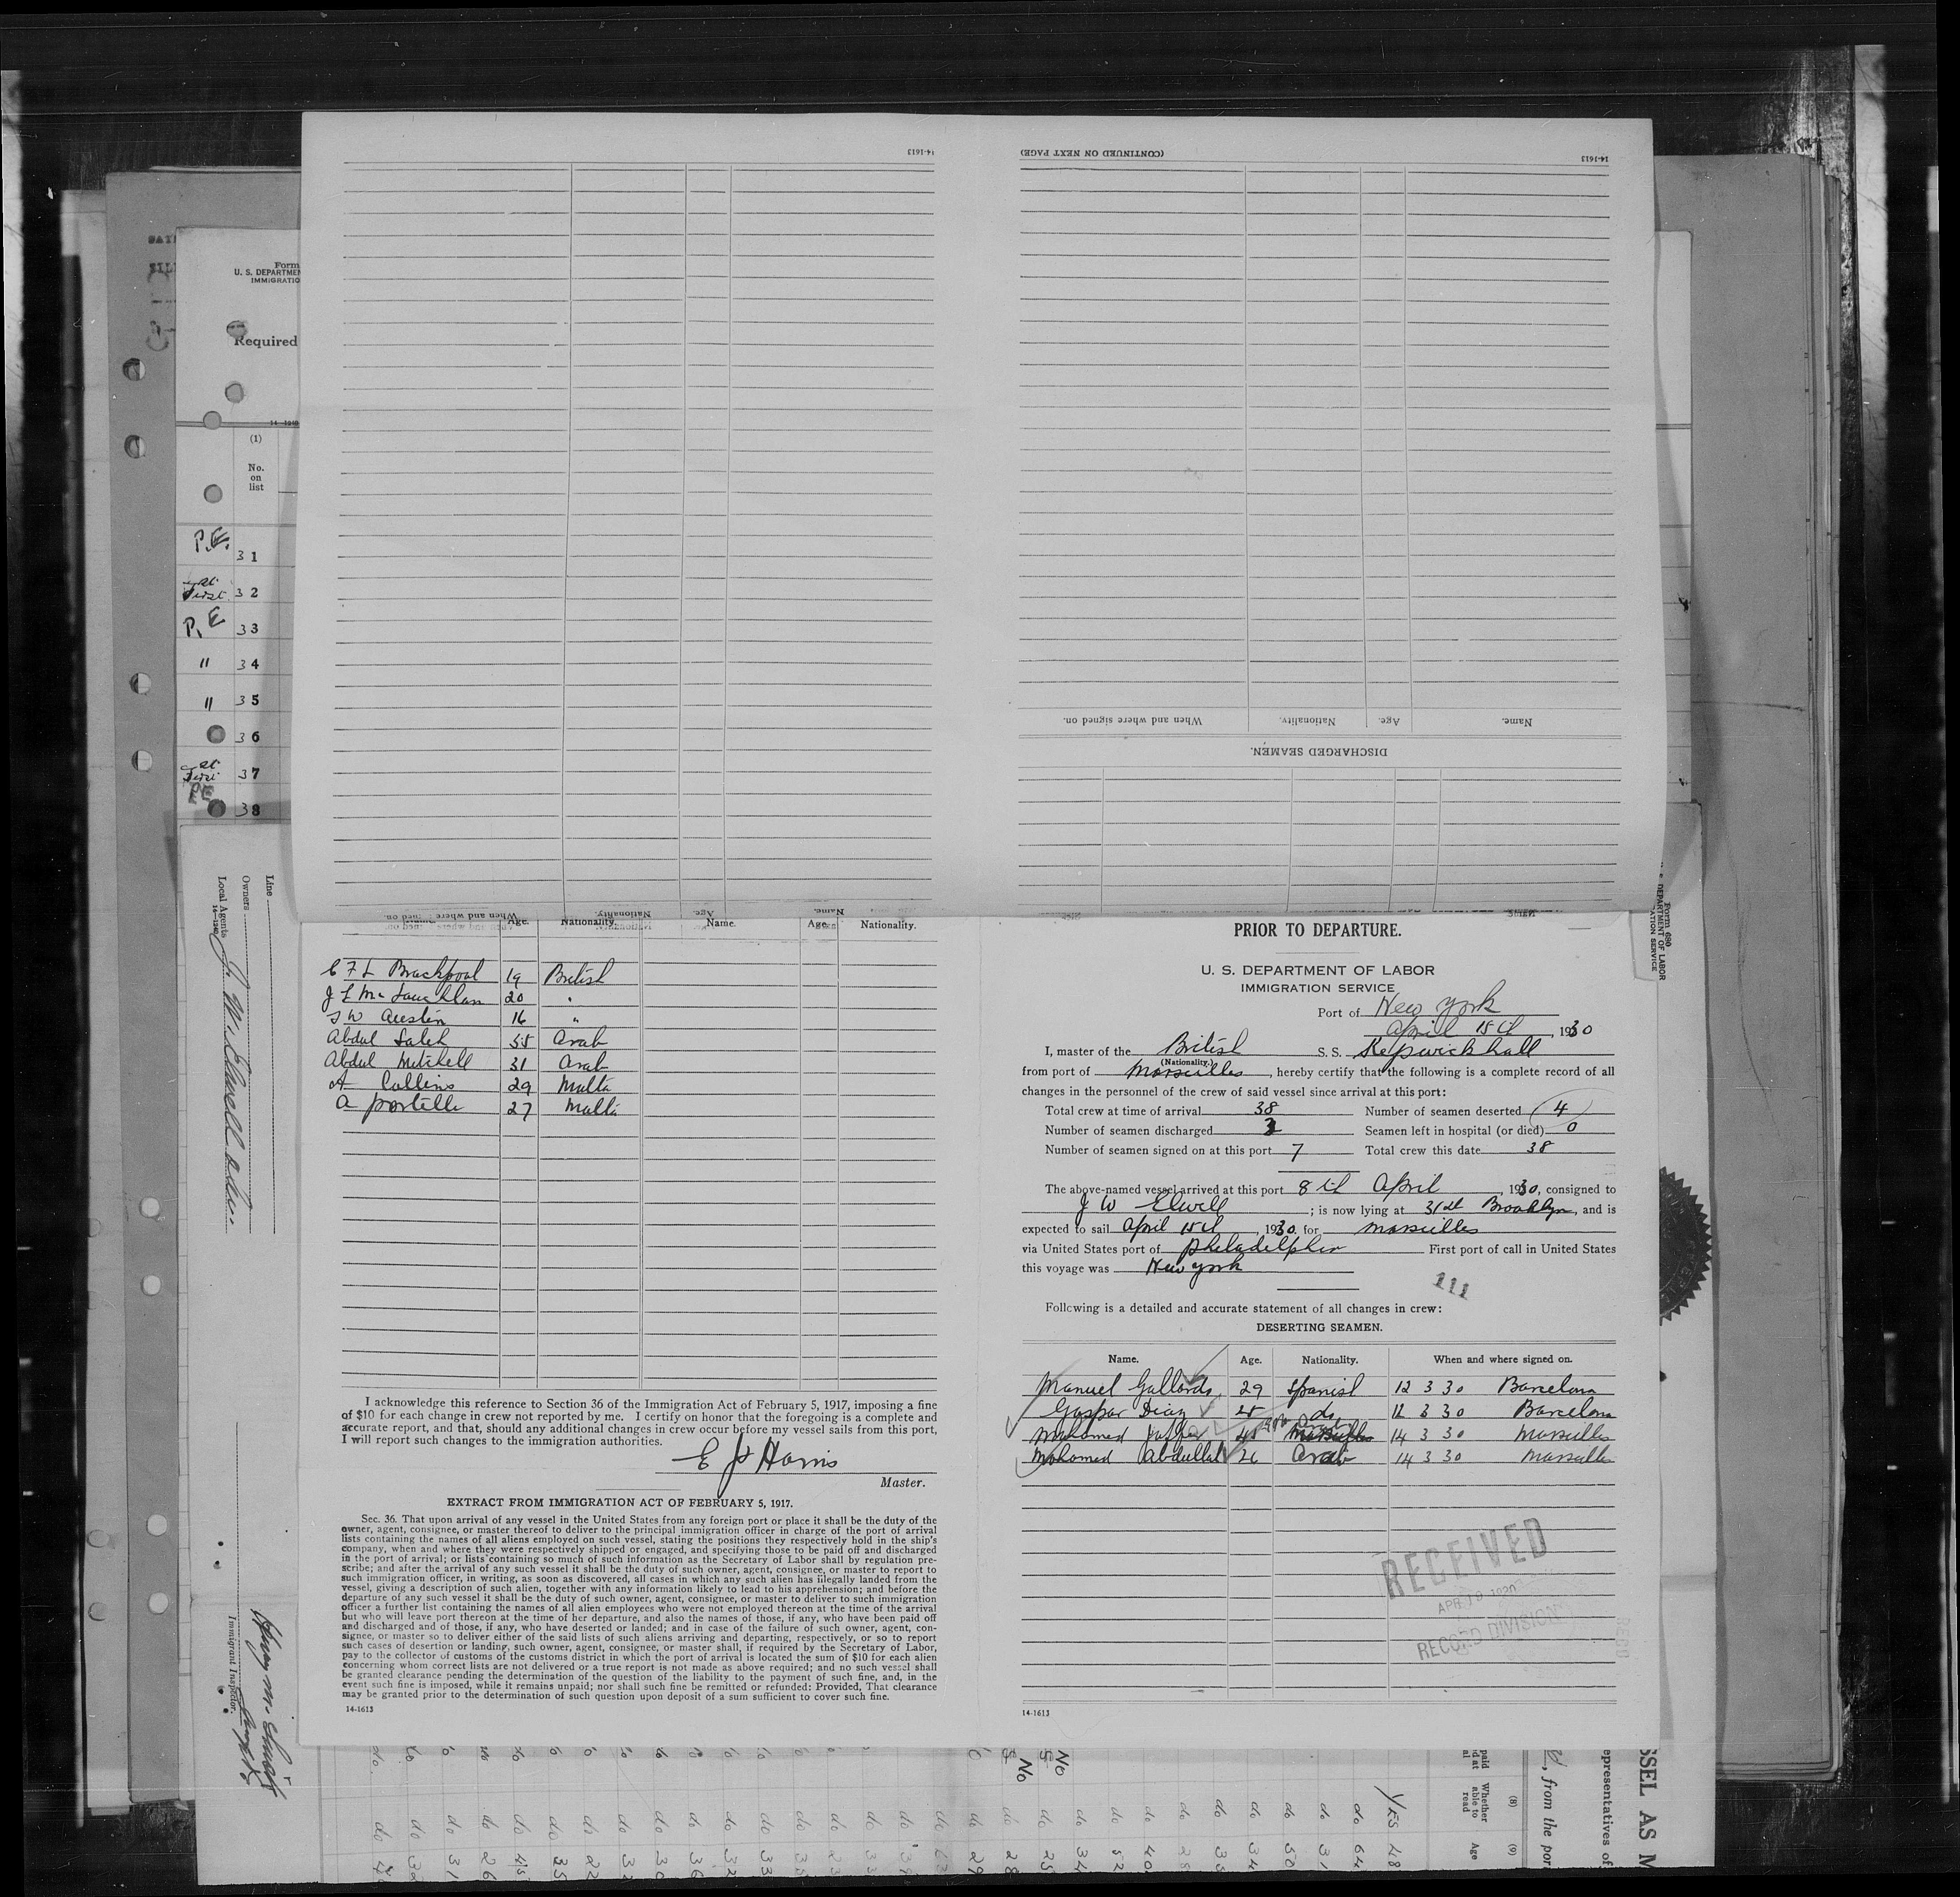 14-1613
(CONTINUED ON NEXT PAGE)
14-1613
When and where signed on.
Nationality.
Age.
Name.
DISCHARGED SEAMEN.
Form
U. S. DEPARTMEN
IMMIGRATIO
Required
(1)
No.
on
list
P.E. 31
32
P.E 33
" 34
" 35
36
37
38
Line
Owners
Local Agents
14-1240
Immigrant Inspector.
Age. Nationality. Name. Age. Nationality.
C F L Brackpool 19 British
J L McLauchlan 20 "
S W Austin 16 "
Abdul Saleh 55 Arab
Abdul Mitchell 31 Arab
A Collins 29 Malta
A Portelli 27 Malta
I acknowledge this reference to Section 36 of the Immigration Act of February 5, 1917, imposing a fine
of $10 for each change in crew not reported by me. I certify on honor that the foregoing is a complete and
accurate report, and that, should any additional changes in crew occur before my vessel sails from this port,
I will report such changes to the immigration authorities.
E J Harris
Master.
EXTRACT FROM IMMIGRATION ACT OF FEBRUARY 5, 1917.
Sec. 36. That upon arrival of any vessel in the United States from any foreign port or place it shall be the duty of the
owner, agent, consignee, or master thereof to deliver to the principal immigration officer in charge of the port of arrival
lists containing the names of all aliens employed on such vessel, stating the positions they respectively hold in the ship's
company, when and where they were respectively shipped or engaged, and specifying those to be paid off and discharged
in the port of arrival; or lists containing so much of such information as the Secretary of Labor shall by regulation pre-
scribe; and after the arrival of any such vessel it shall be the duty of such owner, agent, consignee, or master to report to
such immigration officer, in writing, as soon as discovered, all cases in which any such alien has illegally landed from the
vessel, giving a description of such alien, together with any information likely to lead to his apprehension; and before the
departure of any such vessel it shall be the duty of such owner, agent, consignee, or master to deliver to such immigration
officer a further list containing the names of all alien employees who were not employed thereon at the time of the arrival
but who will leave port thereon at the time of her departure, and also the names of those, if any, who have been paid off
and discharged and of those, if any, who have deserted or landed; and in case of the failure of such owner, agent, con-
signee, or master so to deliver either of the said lists of such aliens arriving and departing, respectively, or so to report
such cases of desertion or landing, such owner, agent, consignee, or master shall, if required by the Secretary of Labor,
pay to the collector of customs of the customs district in which the port of arrival is located the sum of $10 for each alien
concerning whom correct lists are not delivered or a true report is not made as above required; and no such vessel shall
be granted clearance pending the determination of the question of the liability to the payment of such fine, and, in the
event such fine is imposed, while it remains unpaid; nor shall such fine be remitted or refunded: Provided, That clearance
may be granted prior to the determination of such question upon deposit of a sum sufficient to cover such fine.
14-1613
PRIOR TO DEPARTURE.
U. S. DEPARTMENT OF LABOR
IMMIGRATION SERVICE
Port of New York
April 15th, 1930
I, master of the British S. S. Kepwickhall
(Nationality.)
from port of Marseilles, hereby certify that the following is a complete record of all
changes in the personnel of the crew of said vessel since arrival at this port:
Total crew at time of arrival 38 Number of seamen deserted 4
Number of seamen discharged 3 Seamen left in hospital (or died) 0
Number of seamen signed on at this port 7 Total crew this date 38
The above-named vessel arrived at this port 8th April, 1930, consigned to
J W Elwell; is now lying at 31st Brooklyn, and is
expected to sail April 15th, 1930, for Marseilles
via United States port of Philadelphia First port of call in United States
this voyage was New York
111
Following is a detailed and accurate statement of all changes in crew:
DESERTING SEAMEN.
Name. Age. Nationality. When and where signed on.
Manuel Gallardo 29 Spanish 12 3 30 Barcelona
Gaspar Diaz do 12 3 30 Barcelona
Mohamed Arab 14 3 30 Marseilles
Mohamed Abdullah 26 Arab 14 3 30 Marseilles
RECEIVED
APR 1930
RECORD DIVISION
14-1613
Form 680
DEPARTMENT OF LABOR
ATION SERVICE
SSEL AS M
epresentatives of
, from the por
(8)
Whether
able to
read
(9)
Age
YES 48
do 64